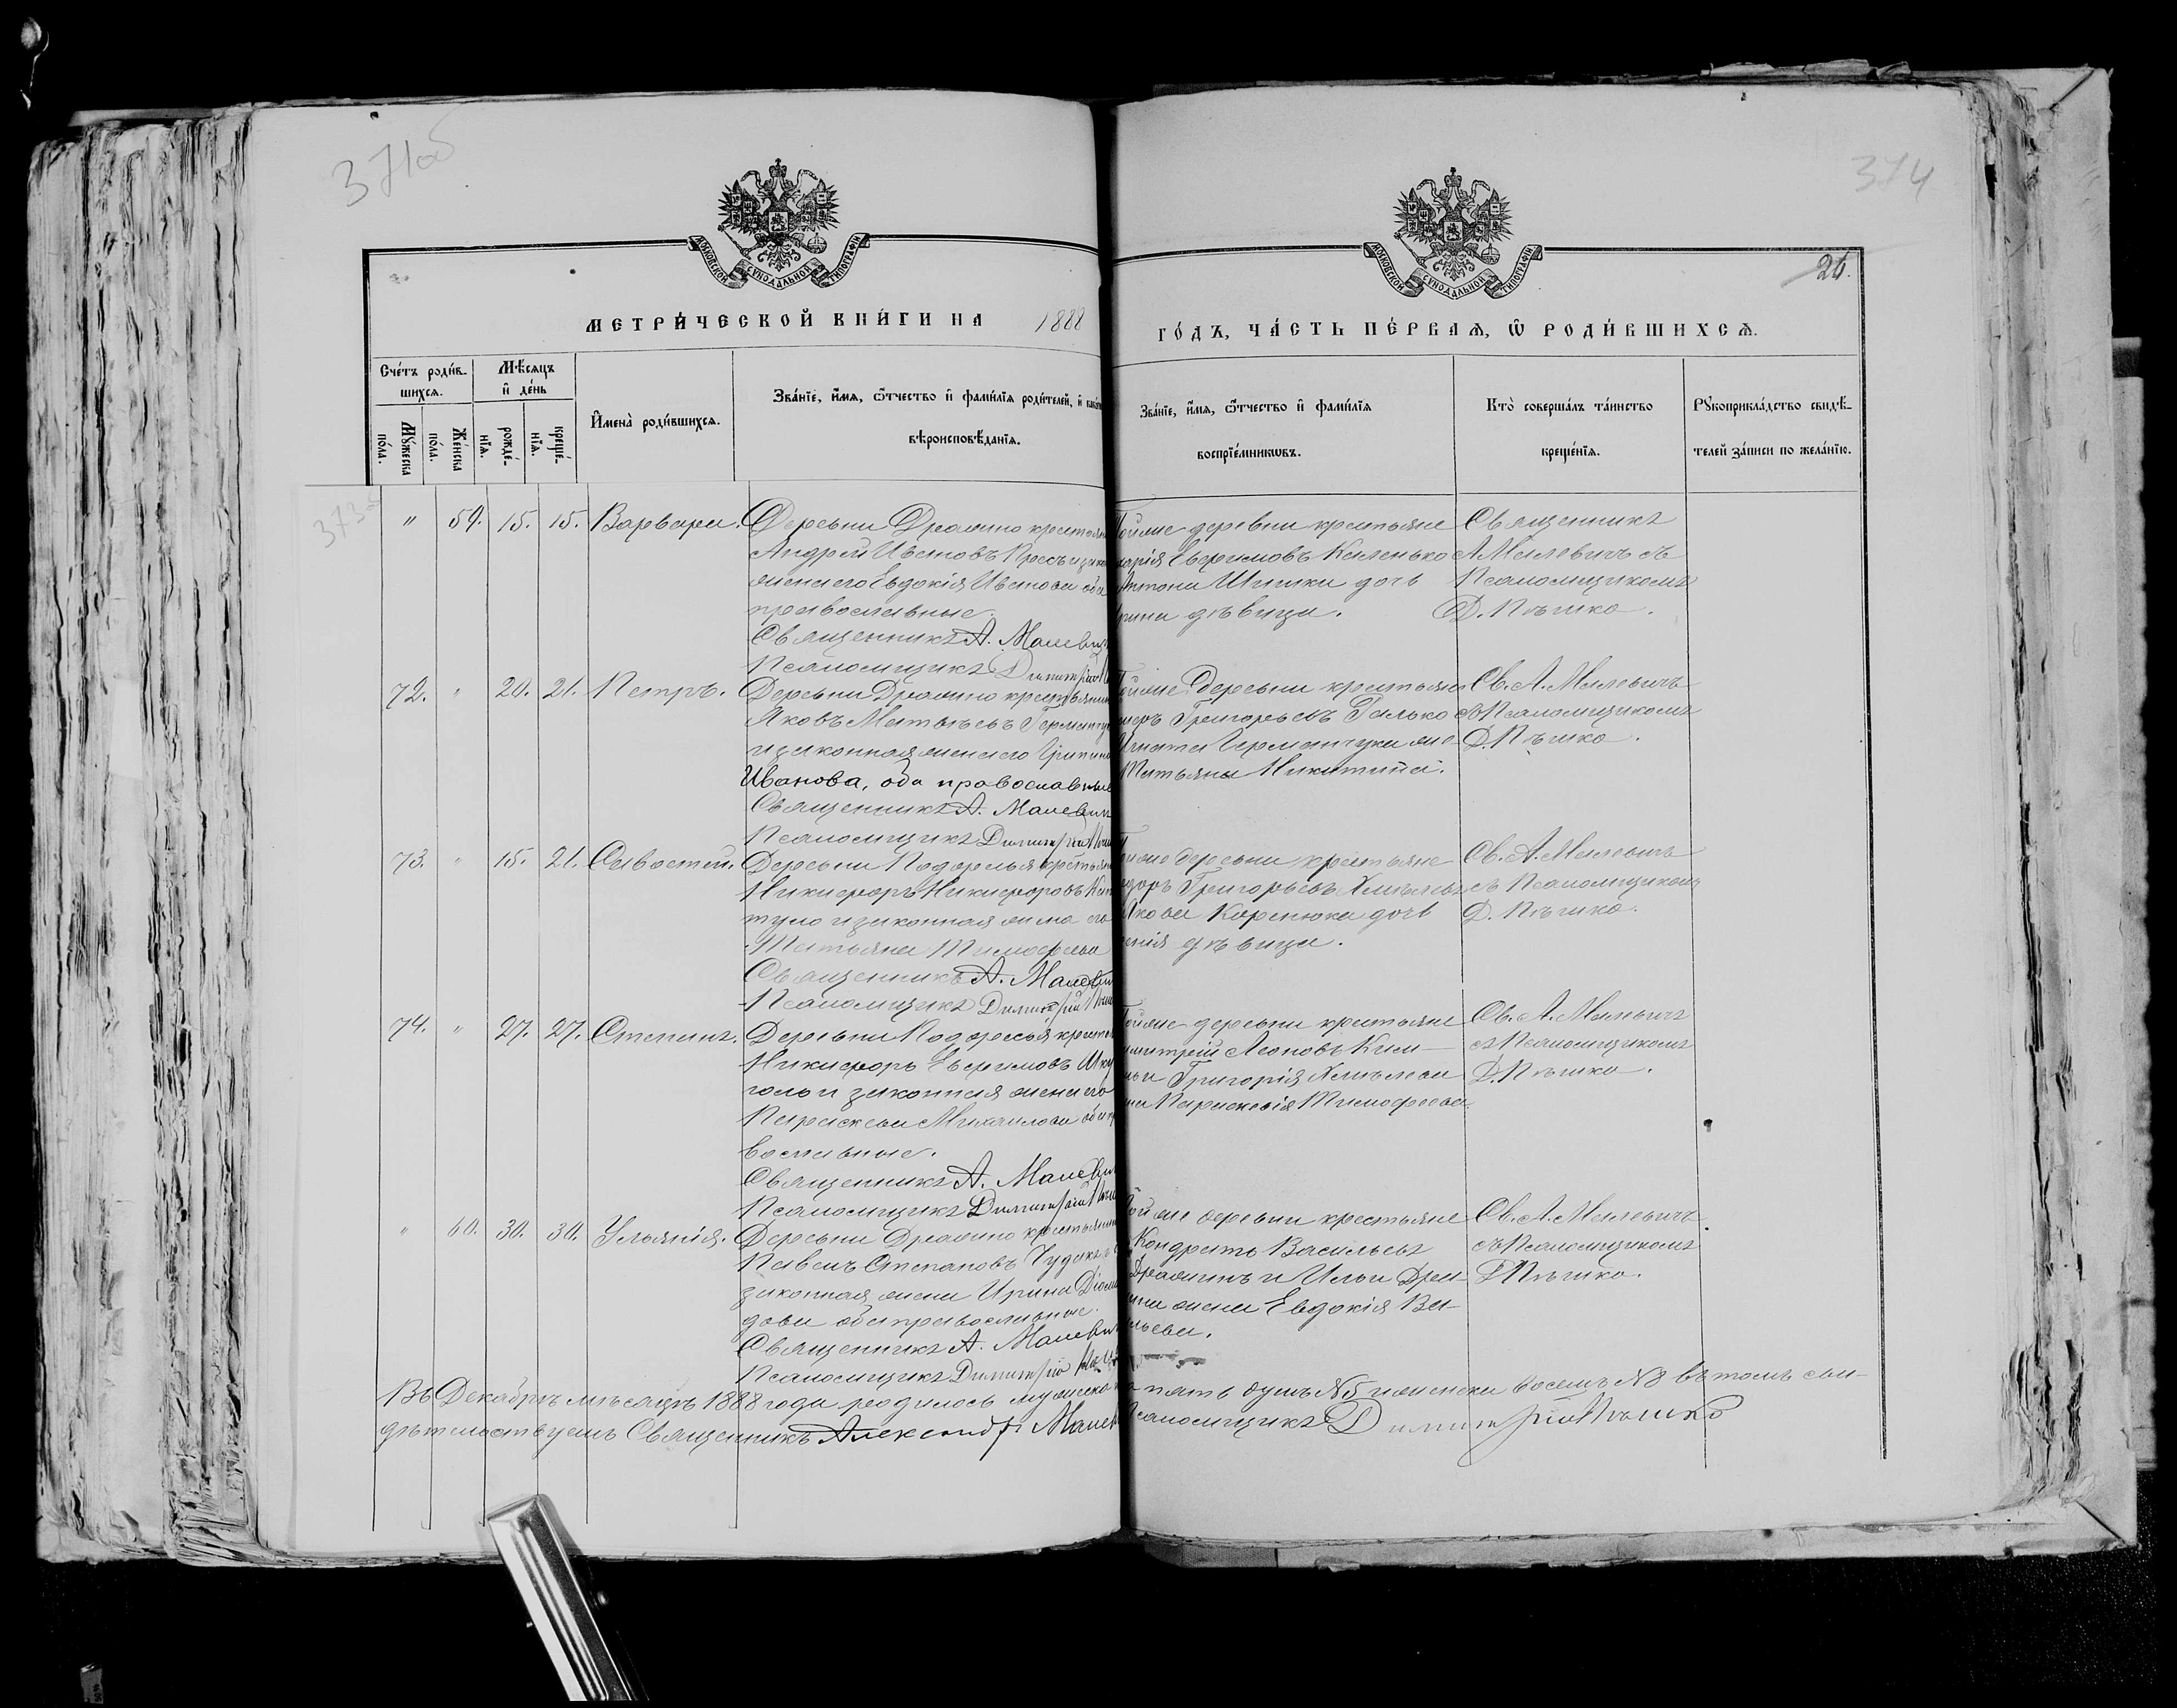 371об
374
МОСКОВСКОЙ СУНОДАЛЬНОЙ ТИПОГРАФІИ
МОСКОВСКОЙ СУНОДАЛЬНОЙ ТИПОГРАФІИ
26.
МЕТРИ́ЧЕСКОЙ КНИ́ГИ НА 1888
ГО́ДЪ, ЧА́СТЬ ПЕ́РВАѦ, Ѿ РОДИ́ВШИХСѦ.
Сче́тъ роди́в-
шихсѧ.
Мѣ́сѧцъ
и де́нь
Мꙋ́жеска
по́ла.
Же́нска
по́ла.
рожде́-
нїѧ.
креще́-
нїѧ.
И҆мена̀ роди́вшихсѧ.
Зва́нїе, и҆́мѧ, ѻ҆́тчество и҆ фами́лїѧ роди́телей, и҆
вѣроисповѣ́данїѧ.
Зва́нїе, и҆́мѧ, ѻ҆́тчество и҆ фами́лїѧ
воспрїе́мникѡвъ.
Кто̀ соверша́лъ та́инство
креще́нїѧ.
Рꙋкоприкла́дство свидѣ́-
телей за́писи по жела́нїю.
" 59. 15. 15. Варвара.
Деревни Дражино
Андрей Ивановъ
жена его Евдокія Иванова оба
православные.
Священникъ А. Малевич
Псаломщикъ Димитрій
деревни крестьяне
Евфимовъ Каленько
Антона Шишки дочь
дѣвица.
Священникъ
А Малевичъ съ
Псаломщикомъ
Д. Пѣшко.
72. " 20. 21. Петръ.
Деревни Дражино крестьянин
Яковъ Матвѣевъ
и законная жена его
Иванова, оба православные
Священникъ А. Малевич
Псаломщикъ Димитрій
деревни крестьяне
Григорьевъ Галько
Игната Германчука же-
Татьяна Никитина.
Св. А. Малевичъ
съ Псаломщикомъ
Д. Пѣшко.
73. " 15. 21. Савастей.
Деревни Подорелья
Никифоръ Никифоровъ
и законная жена его
Татьяна Тимофеева
Священникъ А. Малевич
Псаломщикъ Димитрій
деревни крестьяне
Григорьевъ
Якова Коренюка дочь
дѣвица.
Св. А. Малевичъ
съ Псаломщикомъ
Д. Пѣшко.
74. " 27. 27. Степанъ.
Деревни Подорелья
Никифоръ Евфимовъ
и законная жена его
Параскева Михаилова
вославные.
Священникъ А. Малевич
Псаломщикъ Димитрій
деревни крестьяне
Леоновъ Ким-
Григорія
Параскевія Тимофеева
Св. А. Малевичъ
съ Псаломщикомъ
Д. Пѣшко.
" 60. 30. 30. Ульянія.
Деревни Дражино
Павелъ Степановъ
законная жена Ирина
дова оба православные.
Священникъ А. Малевич
Псаломщикъ Димитрій
деревни крестьяне
Кондратъ Васильевъ
Дражинъ и Ильи Дра-
жена Евдокія Ва-
Св. А. Малевичъ
съ Псаломщикомъ
Д Пѣшко.
Въ Декабрѣ мѣсяцѣ 1888 года родилось мужеска пять душъ №5 и женска восемь №8 въ томъ сви-
дѣтельствуемъ Священникъ Александръ Псаломщикъ Димитрій Пѣшко